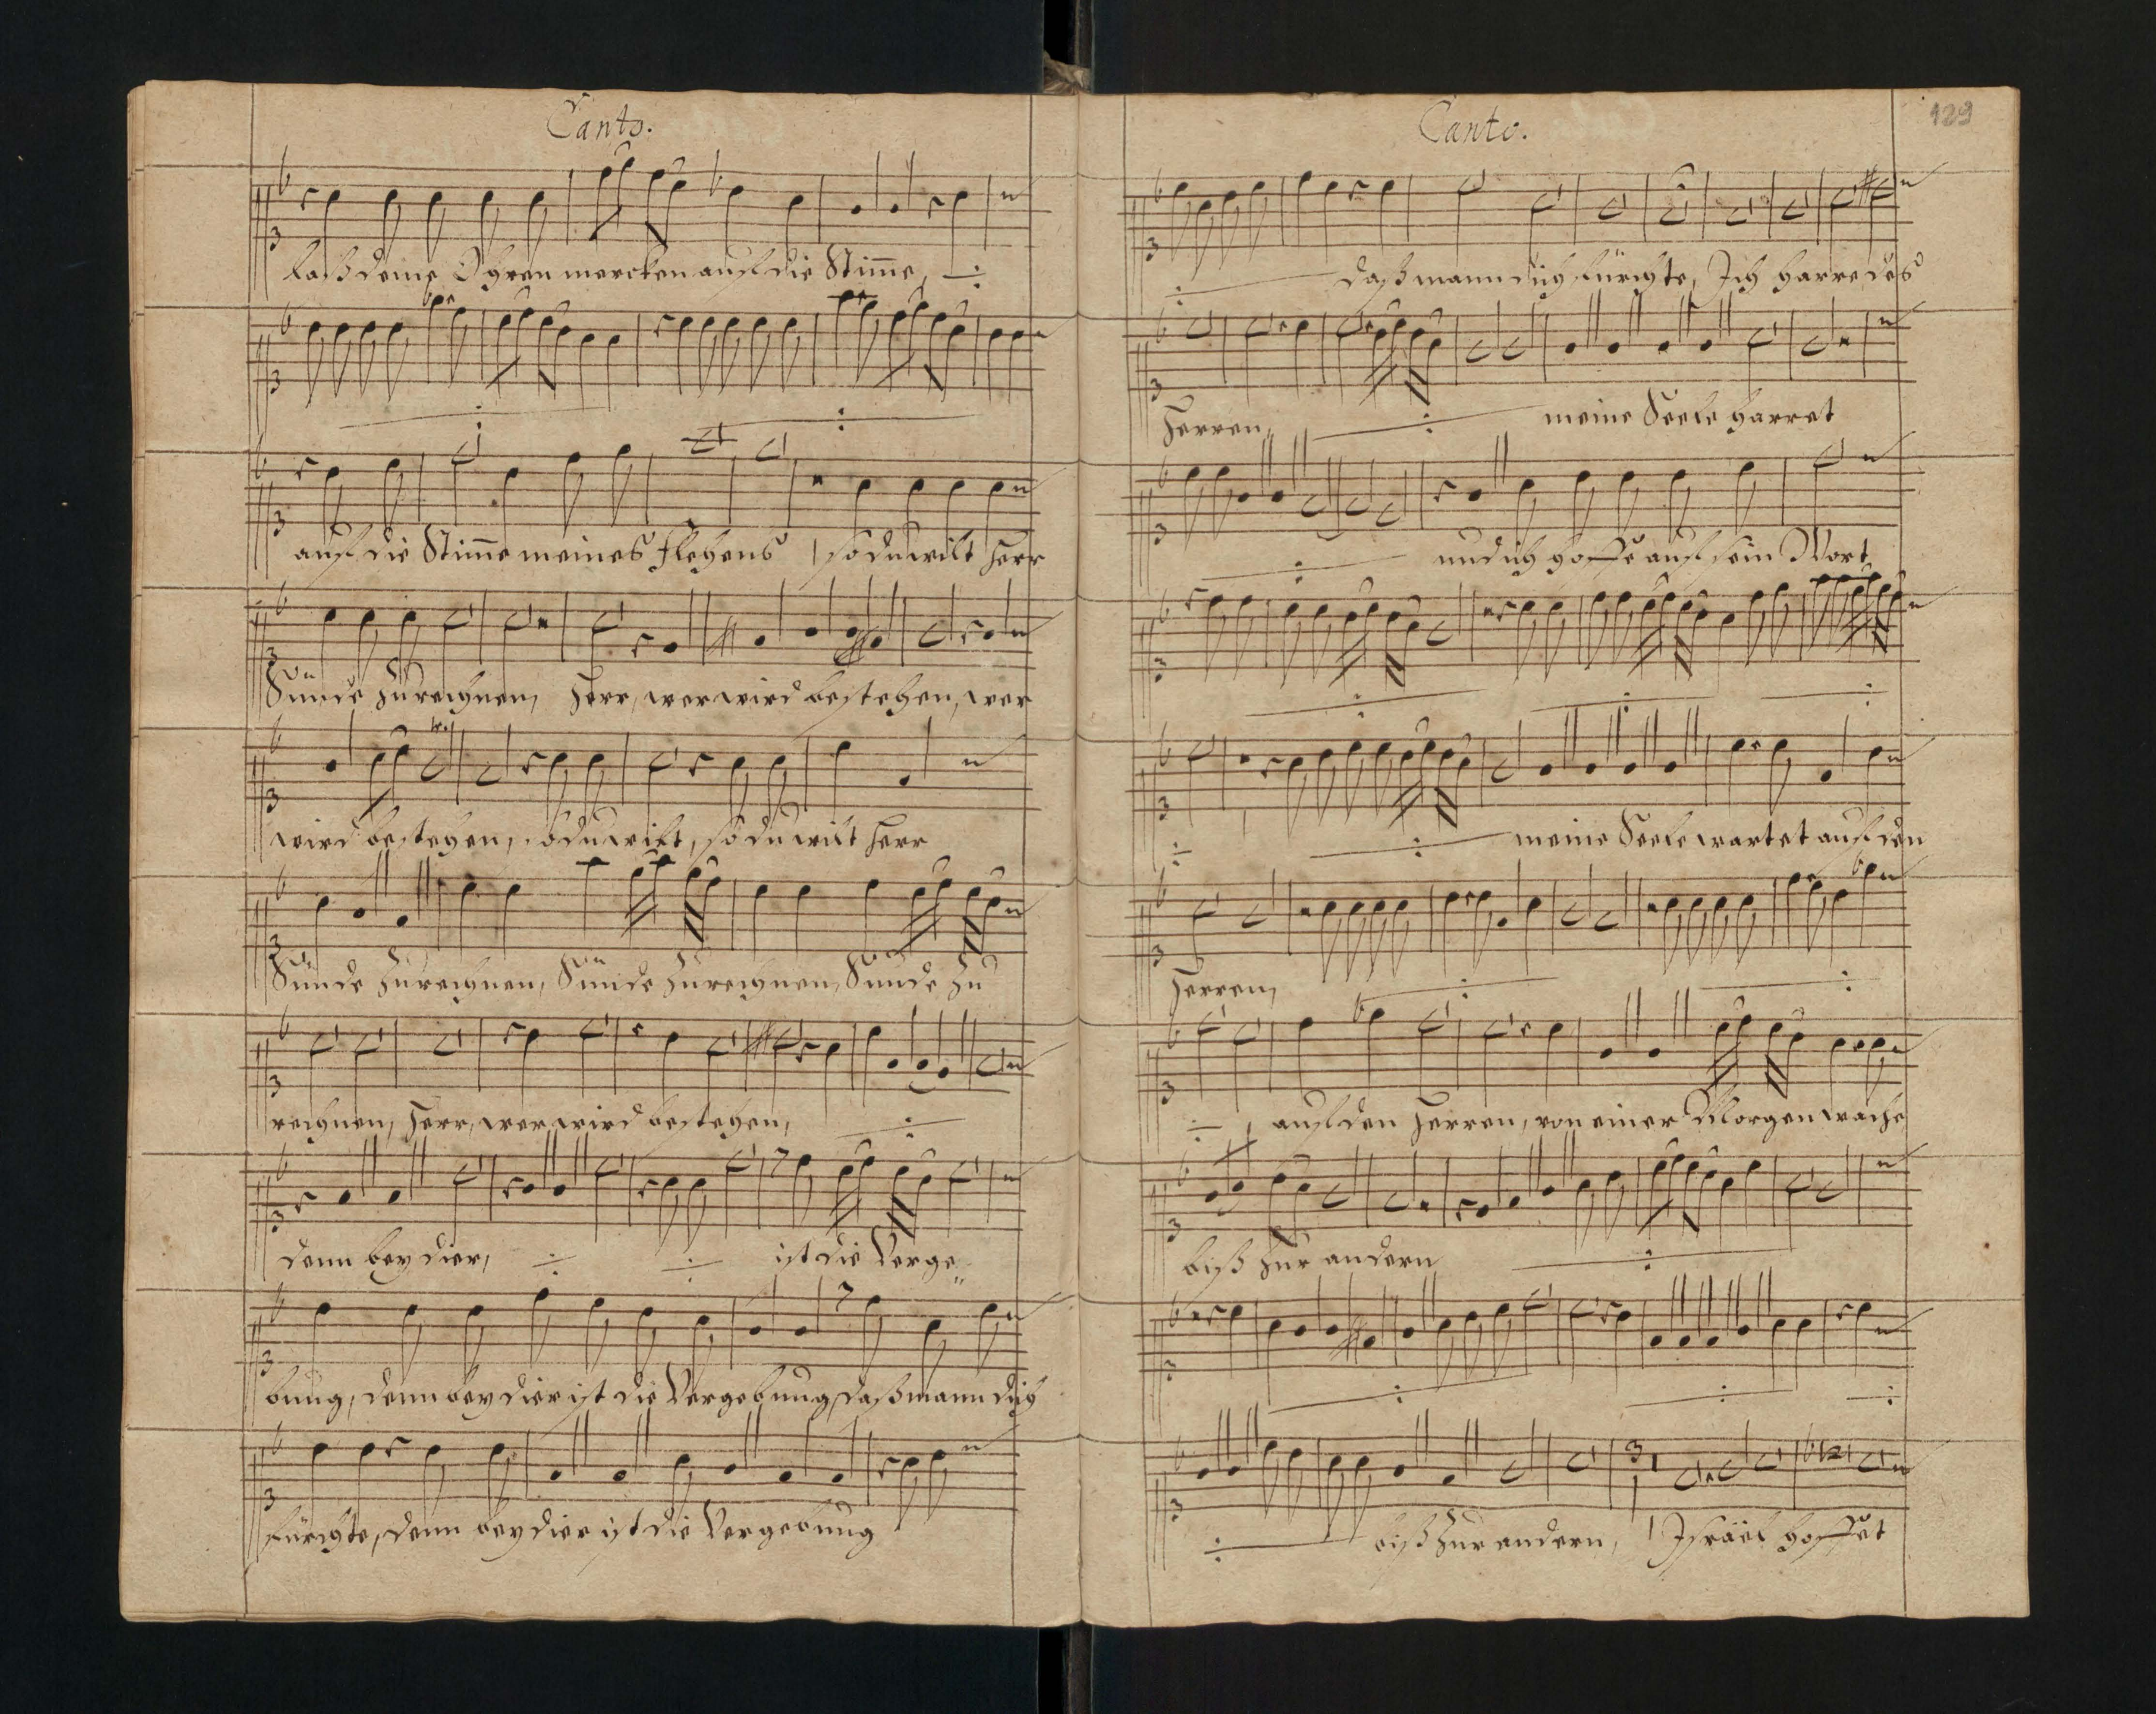 Canto.
laß deine Ohren mercken auf die Stim̄e, ÷
÷ ÷
auf die Stim̄e meines Flehens, so du wilt Herr
Sünde zurechnen, Herr, wer wird bestehen, wer
wird bestehen, so du wilt, so du wilt Herr
Sünde zurechnen, Sünde zurechnen, Sünde zu
rechnen, Herr, wer wird bestehen, ÷
denn bey dier, ÷ ÷ ist die Verge„
bung, denn bey dier ist die Vergebung, daß mann dich
fürchte, denn bey dier ist die Vergebung
Canto.
129
÷ daß mann dich fürchte, Ich harre des
Herren, ÷ meine Seele harret
÷ und ich hoffe auf sein Wort
÷ ÷ ÷
÷ ÷ meine Seele wartet auf den
Herren, ÷ ÷
÷, auf den Herren, von einer Morgenwache
biß zur andern ÷
÷ ÷ ÷
÷ biß zur andern, Israël hoffet